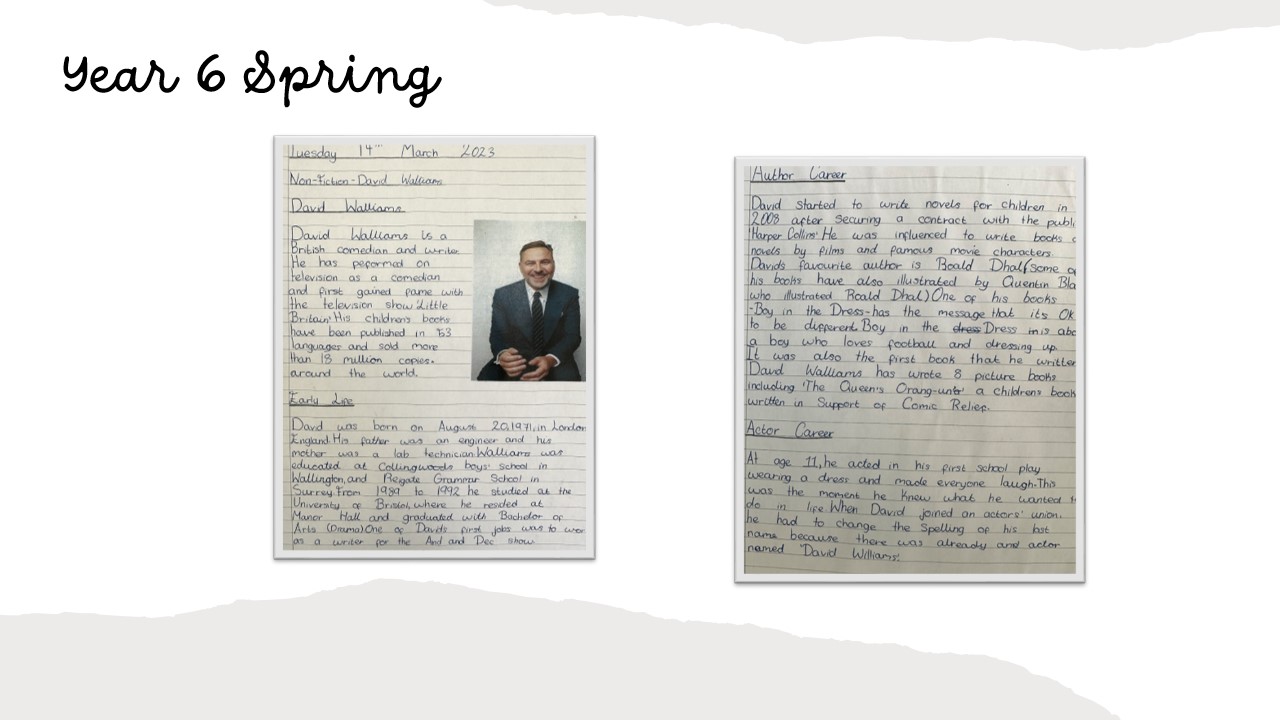 Year 6 Spring
Tuesday 14th March 2023
Non-Fiction-David Walliams
David Walliams
David Walliams is a
British comedian and writer.
He has peformed on
television as a comedian
and first gained fame with
the television show 'Little
Britain'. His children's books
have been published in 53
languages and sold more
than 18 million copies.
around the world.
Early Life
David was born on August 20,1971, in London
England. His father was an engineer and his
mother was a lab technician. Walliams was
educated at Collingwoods boys' school in
Wallington, and Reigate Grammar School in
Surrey. From 1989 to 1992 he studied at the
University of Bristol, where he resided at
Manor Hall and graduated with Bachelor of
Arts (Drama) One of David's first jobs was to wor
as a writer for the And and Dec show.
Author Career
David started to write novels for children in
2008 after securing a contract with the publi
'Harper Collins'. He was influenced to write books
novels by films and famous movie characters.
Davids favourite author is Roald Dhal (some o
his books have also illustrated by Quentin Bla
who illustrated Roald Dhal) One of his books
-Boy in the Dress-has the message that its OK
to be different. Boy in the dress Dress is abo
a boy who loves football and dressing up.
It was also the first book that he written
David Walliams has wrote 8 picture books
including 'The Queen's Orang-utan' a children's book
written in Support of Comic Relief.
Actor Career
At age 11, he acted in his first school play
wearing a dress and made everyone laugh. This
was the moment he knew what he wanted t
do in life. When David joined an actors' union,
he had to change the spelling of his last
name because there was already and actor
named 'David Williams'.